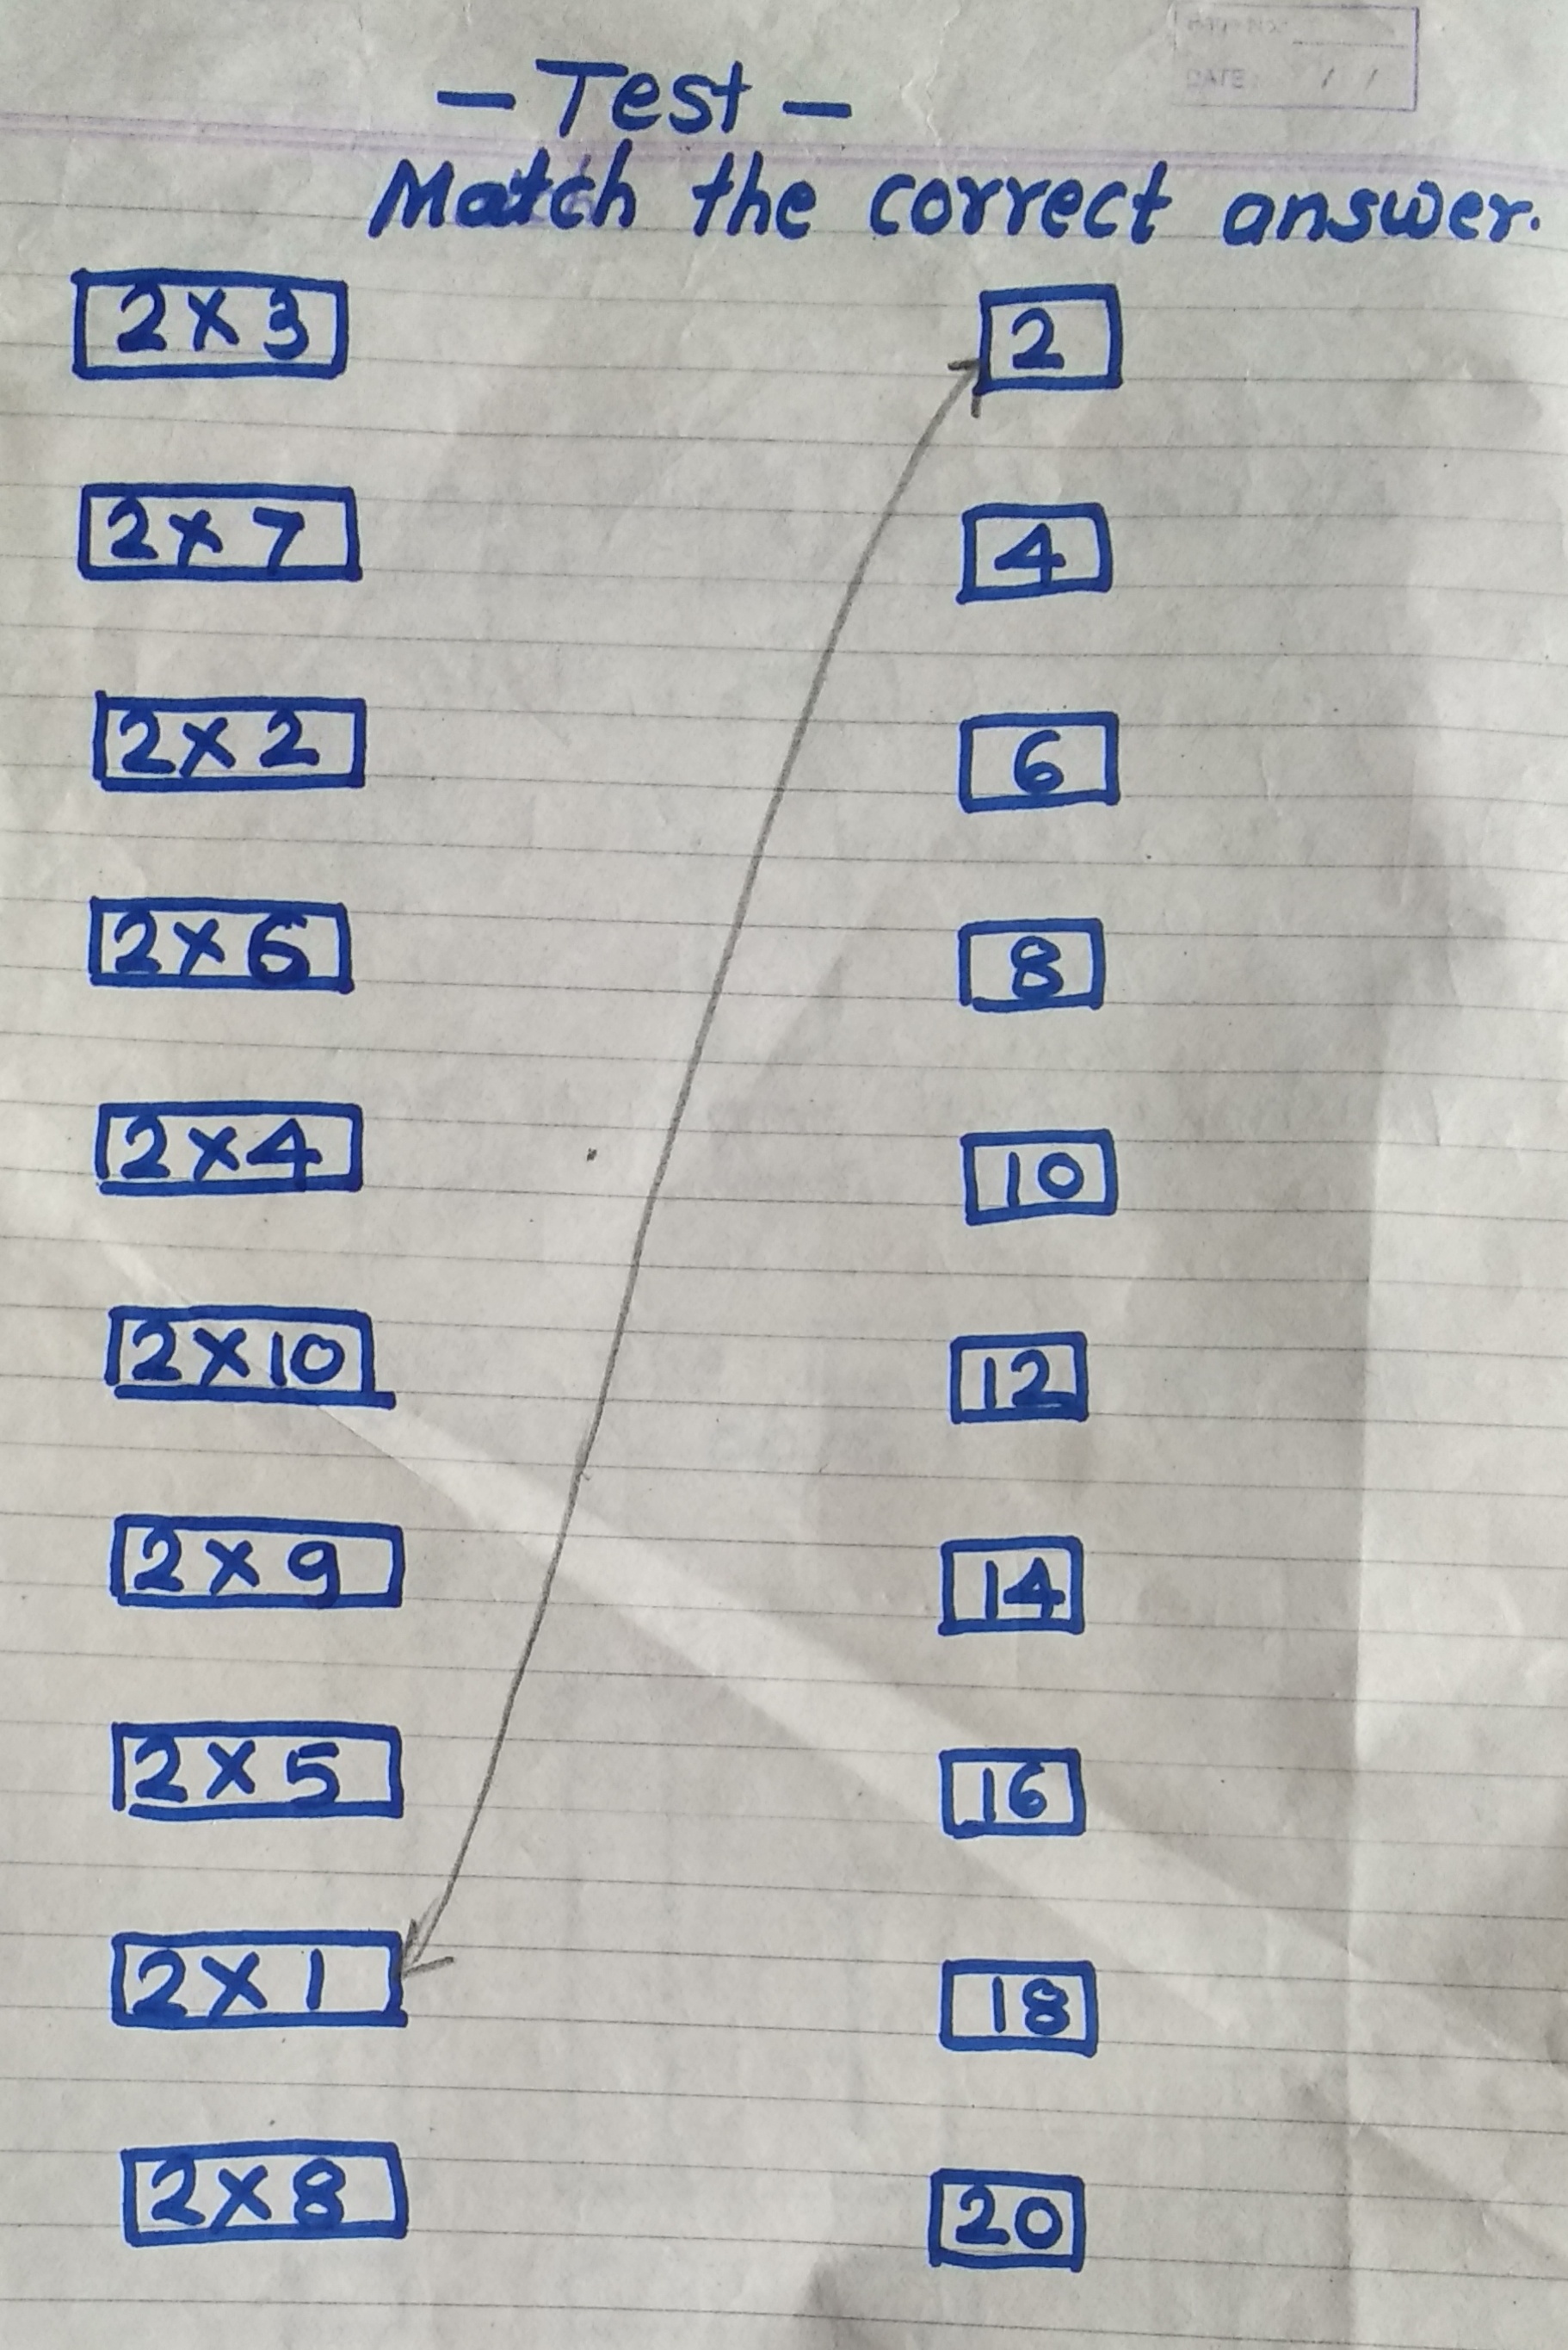 DATE: / /
- Test -
Match the correct answer.
2×3 2
2×7 4
2×2 6
2×6 8
2×4 10
2×10 12
2×9 14
2×5 16
2×1 18
2×8 20